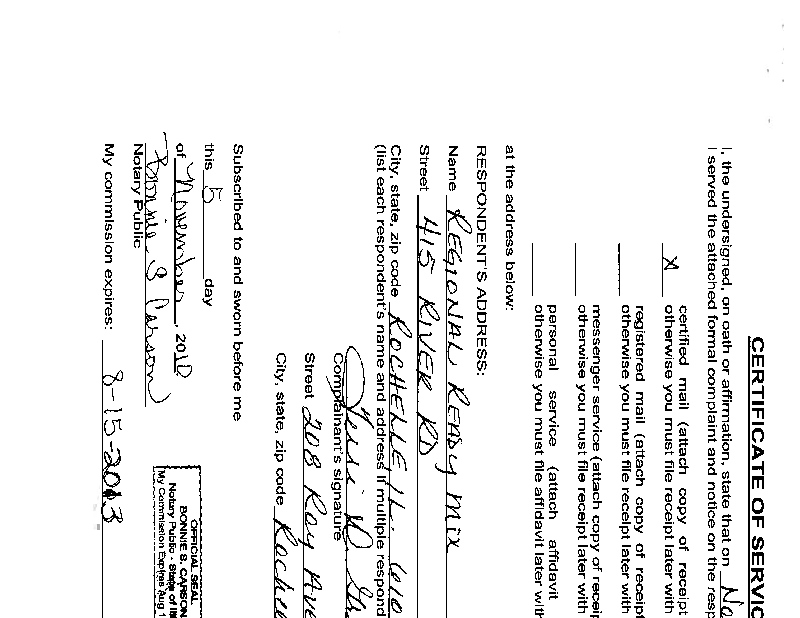 CERTIFICATE OF SERVIC
I, the undersigned, on oath or affirmation, state that on No
I served the attached formal complaint and notice on the resp
X certified mail (attach copy of receipt
otherwise you must file receipt later with
registered mail (attach copy of receipt
otherwise you must file receipt later with
messenger service (attach copy of receip
otherwise you must file receipt later with
personal service (attach affidavit
otherwise you must file affidavit later with
at the address below:
RESPONDENT'S ADDRESS:
Name REGIONAL READY MIX
Street 415 RIVER RD
City, state, zip code ROCHELLE IL. 610
(list each respondent's name and address if multiple respond
Complainant's signature
Street 208 Ray Ave
City, state, zip code Roche
Subscribed to and sworn before me
this 5 day
of November, 2010
Bonnie S Carson
Notary Public
My commission expires: 8-15-2013
OFFICIAL SEAL
BONNIE S. CARSON
Notary Public - State of Il
My Commission Expires Aug 1